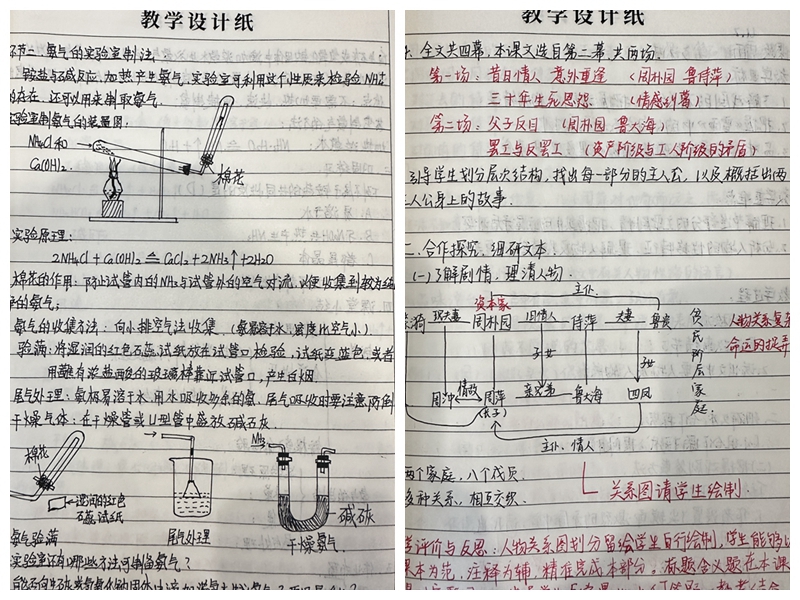 教学设计纸
环节二、氨气的实验室制法
铵盐与碱反应,加热产生氨气,实验室可利用这个性质来检验NH4+
的存在,还可以用来制取氨气.
实验室制氨气的装置图:
NH4Cl和
Ca(OH)2.
棉花
实验原理:
2NH4Cl + Ca(OH)2 ≙ CaCl2 + 2NH3↑ + 2H2O
棉花的作用:防止试管内的NH3与试管外的空气对流,以便收集到较为纯
净的氨气;
氨气的收集方法:向下排空气法收集.(氨易溶于水,密度比空气小)
验满:将湿润的红色石蕊试纸放在试管口检验,试纸变蓝色,或者
用蘸有浓盐酸的玻璃棒靠近试管口,产生白烟.
尾气处理:氨极易溶于水,用水吸收多余的氨,尾气吸收时要注意防倒
干燥气体:在干燥管或U型管中盛放碱石灰.
棉花
湿润的红色
石蕊试纸
NH3
碱石灰
氨气验满
尾气处理
干燥氨气
实验室还有哪些方法可制备氨气?
教学设计纸
全文共四幕,本课文选自第二幕,共两场.
第一场:昔日情人 意外重逢 (周朴园 鲁侍萍)
三十年生死恩怨 (情感纠葛)
第二场:父子反目 (周朴园 鲁大海)
罢工与反罢工 (资产阶级与工人阶级的矛盾)
引导学生划分层次结构,找出每一部分的主人公,以及概括出两
主人公身上的故事.
二、合作探究,细研文本
(一)了解剧情,理清人物.
主仆
资本家
现夫妻 周朴园 旧情人 侍萍 夫妻 鲁贵
子女
子女
周冲 情敌 周萍 亲兄弟 鲁大海 四凤
(长子)
主仆、情人
贫民阶层家庭
人物关系复杂
命运的捉弄
两个家庭,八个成员.
多种关系,相互交织.
关系图请学生绘制.
评价与反思:人物关系图划分留给学生自行绘制,学生能够以
课本为范,注释为辅,精准完成本部分.标题含义题在本课